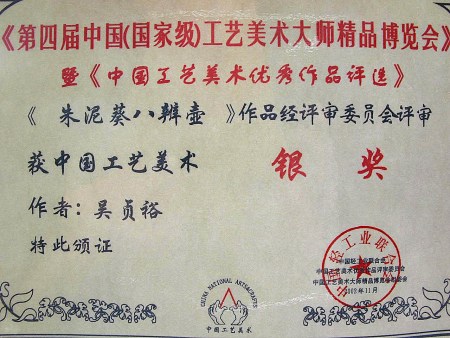 《第四届中国(国家级)工艺美术大师精品博览会》
暨《中国工艺美术优秀作品评选》
《 朱泥葵八辦壶 》作品经评审委员会评审
获中国工艺美术 银奖
作者:吴贞裕
特此颁证
中国轻工业联合会
中国工艺美术优秀作品评审委员会
中国工艺美术大师精品博览会组委会
2002年11月
CHINA NATIONAL ARTS&CRAFTS
中国工艺美术